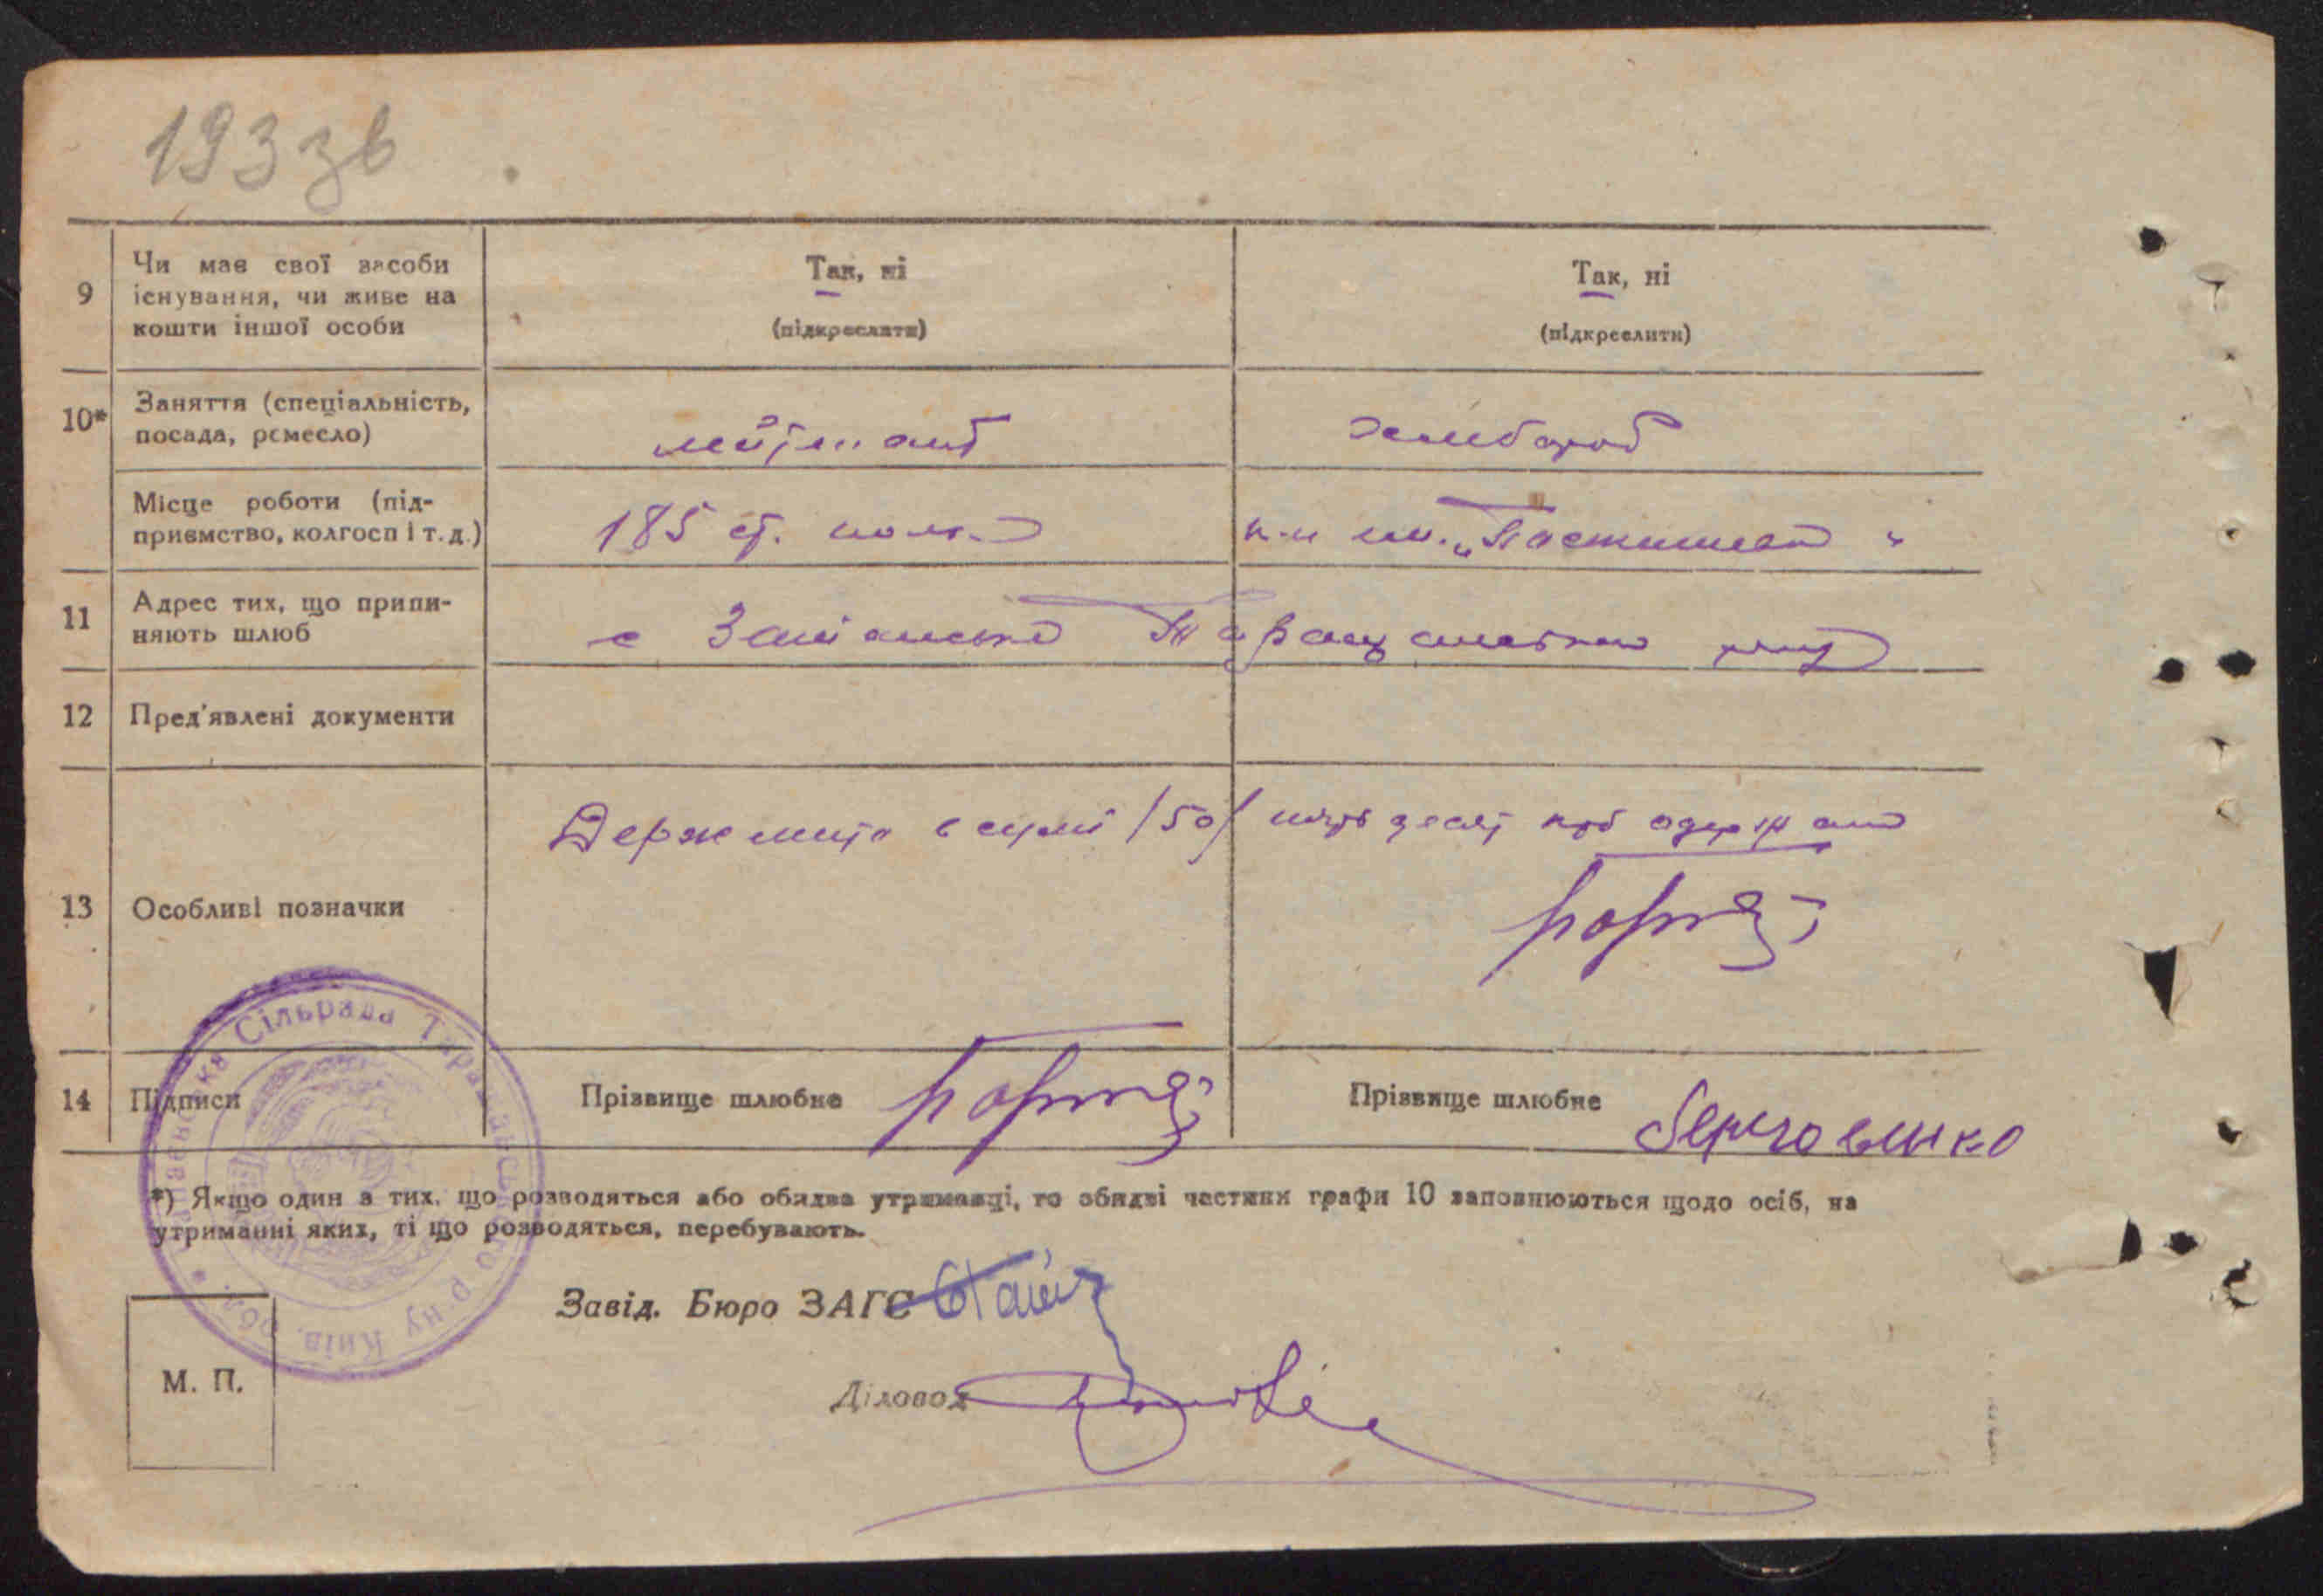 193 зв
9
Чи має свої засоби
існування, чи живе на
кошти іншої особи
Так, ні
(підкреслити)
Так, ні
(підкреслити)
10*
Заняття (спеціальність,
посада, ремесло)
лейтенант
хлібороб
Місце роботи (під-
приємство, колгосп і т. д.)
185 ст.
ім. „Постишева"
11
Адрес тих, що припи-
няють шлюб
с
Таращанського р-ну
12
Пред'явлені документи
13
Особливі позначки
Держмито в сумі /50/ п'ятдесят крб одержано
14
Підписи
Прізвище шлюбне
Прізвище шлюбне
Сільрада Таращанського р-ну Київ. обл.
*) Якщо один з тих, що розводяться або обидва утриманці, то обидві частини графи 10 заповнюються щодо осіб, на
утриманні яких, ті що розводяться, перебувають.
Завід. Бюро ЗАГС
Діловод
М. П.